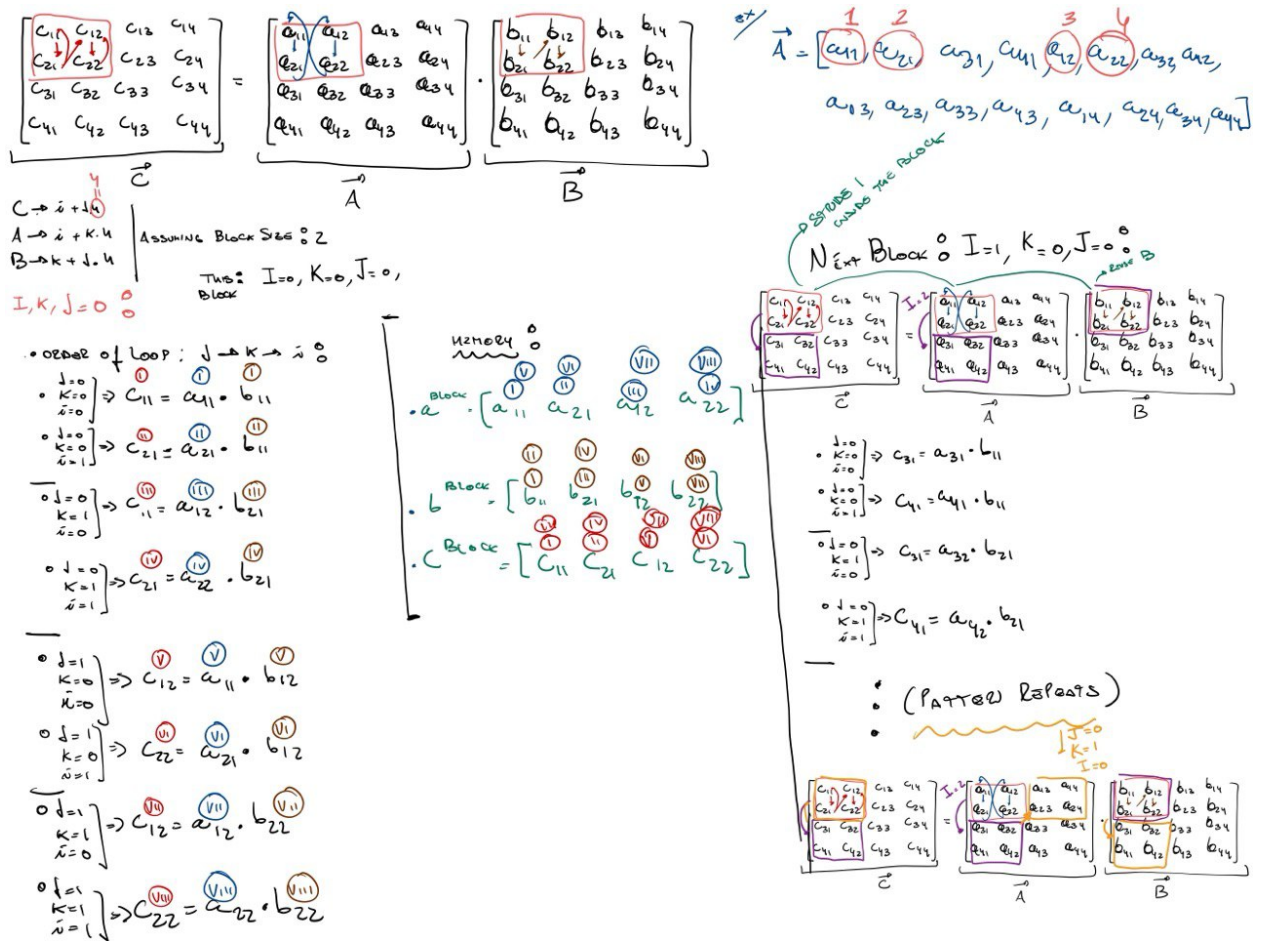 [C11 C12 C13 C14
C21 C22 C23 C24
C31 C32 C33 C34
C41 C42 C43 C44]
C
=
[a11 a12 a13 a14
a21 a22 a23 a24
a31 a32 a33 a34
a41 a42 a43 a44]
A
·
[b11 b12 b13 b14
b21 b22 b23 b24
b31 b32 b33 b34
b41 b42 b43 b44]
B
4
C → i + J.4
A → i + K.4
B → K + J.4
ASSUMING BLOCK SIZE: 2
THIS BLOCK: I=0, K=0, J=0,
I, K, J = 0 :
• ORDER OF LOOP: J → K → i :
• J=0 K=0 i=0 ] ⇒ C11 = a11 · b11
I I I
• J=0 K=0 i=1 ] ⇒ C21 = a21 · b11
II II II
• J=0 K=1 i=0 ] ⇒ C11 = a12 · b21
III III III
• J=0 K=1 i=1 ] ⇒ C21 = a22 · b21
IV IV IV
• J=1 K=0 i=0 ] ⇒ C12 = a11 · b12
V V V
• J=1 K=0 i=1 ] ⇒ C22 = a21 · b12
VI VI VI
• J=1 K=1 i=0 ] ⇒ C12 = a12 · b22
VII VII VII
• J=1 K=1 i=1 ] ⇒ C22 = a22 · b22
VIII VIII VIII
MEMORY :
V VI VII VIII
I II III IV
• a BLOCK = [a11 a21 a12 a22]
II IV VI VIII
I III V VII
• b BLOCK = [b11 b21 b12 b22]
I II V VI
• C BLOCK = [C11 C21 C12 C22]
ex/
1 2 3 4
A = [a11, a21, a31, a41, a12, a22, a32, a42,
a13, a23, a33, a43, a14, a24, a34, a44]
STRIDE 1
INSIDE THE BLOCK
NEXT BLOCK : I=1, K=0, J=0 :
Reuse B
I.2
[C11 C12 C13 C14
C21 C22 C23 C24
C31 C32 C33 C34
C41 C42 C43 C44]
C
=
I.2
[a11 a12 a13 a14
a21 a22 a23 a24
a31 a32 a33 a34
a41 a42 a43 a44]
A
·
[b11 b12 b13 b14
b21 b22 b23 b24
b31 b32 b33 b34
b41 b42 b43 b44]
B
• J=0 K=0 i=0 ] ⇒ C31 = a31 · b11
• J=0 K=0 i=1 ] ⇒ C41 = a41 · b11
• J=0 K=1 i=0 ] ⇒ C31 = a32 · b21
• J=0 K=1 i=1 ] ⇒ C41 = a42 · b21
(PATTERN REPEATS)
J=0
K=1
I=0
[C11 C12 C13 C14
C21 C22 C23 C24
C31 C32 C33 C34
C41 C42 C43 C44]
C
=
I.2
[a11 a12 a13 a14
a21 a22 a23 a24
a31 a32 a33 a34
a41 a42 a43 a44]
A
·
[b11 b12 b13 b14
b21 b22 b23 b24
b31 b32 b33 b34
b41 b42 b43 b44]
B